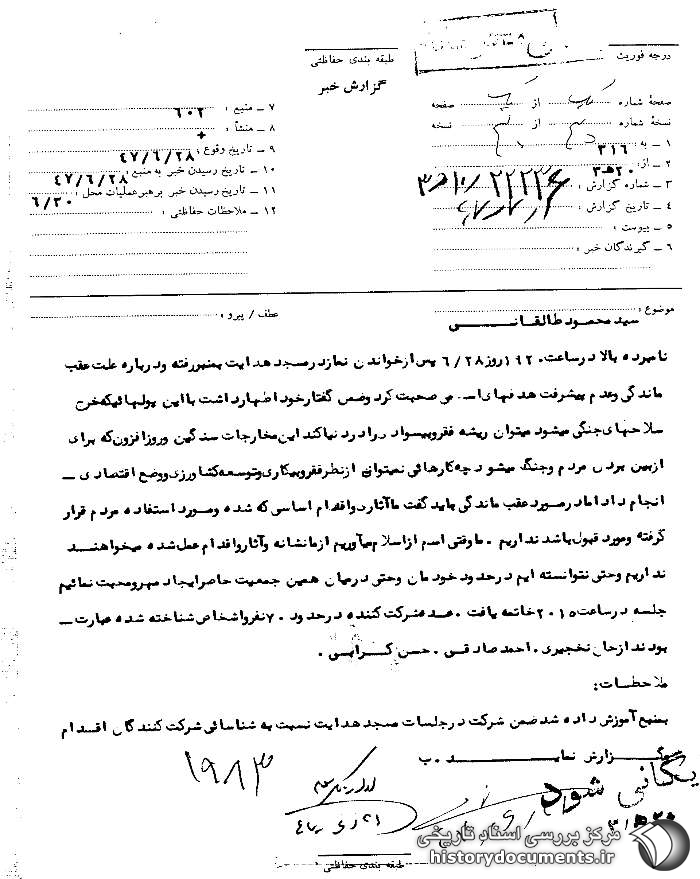 درجه فوریت
طبقه بندی حفاظتی
گزارش خبر
صفحهٔ شماره یک از یک صفحه
نسخهٔ شماره از نسخه
۱ ـ به : ۳۱۶
۲ ـ از : ۲۰ ه ۳
۳ ـ شماره گزارش :
۴ ـ تاریخ گزارش :
۵ ـ پیوست :
۶ ـ گیرندگان خبر :
۷ ـ منبع : ۶۰۲
۸ ـ منشأ : +
۹ ـ تاریخ وقوع : ۴۷/۶/۲۸
۱۰ ـ تاریخ رسیدن خبر به منبع : ۴۷/۶/۲۸
۱۱ ـ تاریخ رسیدن خبر برهبر عملیات محل : ۶/۳۰
۱۲ ـ ملاحظات حفاظتی :
موضوع : سید محمود طالقانی
عطف / پیرو :
نامبرده بالا در ساعت ۱۹۲۰ روز ۶/۲۸ پس از خواندن نماز در مسجد هدایت بمنبر رفته و درباره علت عقب
ماندگی و عدم پیشرفت هدفهای اسلامی صحبت کرد و ضمن گفتار خود اظهار داشت با این پولهائیکه خرج
سلاحهای جنگی میشود میتوان ریشه فقر و بیسوادی را در دنیا کند این مخارجات سنگین و روزافزون که برای
از بین بردن مردم و جنگ میشود چه کارهائی نمیتوان از نظر فقر و بیکاری و توسعه کشاورزی و وضع اقتصادی ـ
انجام داد اما در مورد عقب ماندگی باید گفت ما آثاری و اقدام اساسی که شده و مورد استفاده مردم قرار
گرفته و مورد قبول باشد نداریم . ما وقتی اسم از اسلام میآوریم از ما نشانه و آثار و اقدام عمل شده میخواهند
نداریم و حتی نتوانسته ایم در حدود خودمان و حتی در میان همین جمعیت حاضر ایجاد مهر و محبت نمائیم
جلسه در ساعت ۲۰۱۵ خاتمه یافت . عده شرکت کننده در حدود ۷۰ نفر و اشخاص شناخته شده عبارت ـ
بودند از حاج نخجیری . احمد صادقی . حسن کرابی .
ملاحظات :
بمنبع آموزش داده شد ضمن شرکت در جلسات مسجد هدایت نسبت به شناسائی شرکت کنندگان اقدام
گزارش نماید . ب
۱۹۸۳
بایگانی شود
۲۰ ه ۳
طبقه بندی حفاظتی :
مرکز بررسی اسناد تاریخی
historydocuments.ir